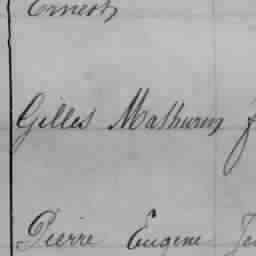 Ernest
Gilles Mathurin f
Pierre Eugene Je